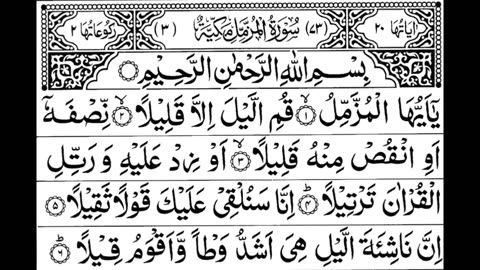 اٰیَاتُهَا ٢٠ (٧٣) سُوْرَةُ الْمُزَّمِّلِ مَكِّيَّةٌ (٣) رُكُوْعَاتُهَا ٢
بِسْمِ اللهِ الرَّحْمٰنِ الرَّحِيْمِ
يٰۤاَيُّهَا الْمُزَّمِّلُ ۙ‏﴿۱﴾ قُمِ الَّيْلَ اِلَّا قَلِيْلًا ۙ‏﴿۲﴾ نِّصْفَهٗۤ
اَوِ انْقُصْ مِنْهُ قَلِيْلًا ۙ‏﴿۳﴾ اَوْ زِدْ عَلَيْهِ وَ رَتِّلِ
الْقُرْاٰنَ تَرْتِيْلًا ؕ‏﴿۴﴾ اِنَّا سَنُلْقِىْ عَلَيْكَ قَوْلًا ثَقِيْلًا ‏﴿۵﴾
اِنَّ نَاشِئَةَ الَّيْلِ هِىَ اَشَدُّ وَطْاً وَّاَقْوَمُ قِيْلًا ؕ‏﴿۶﴾